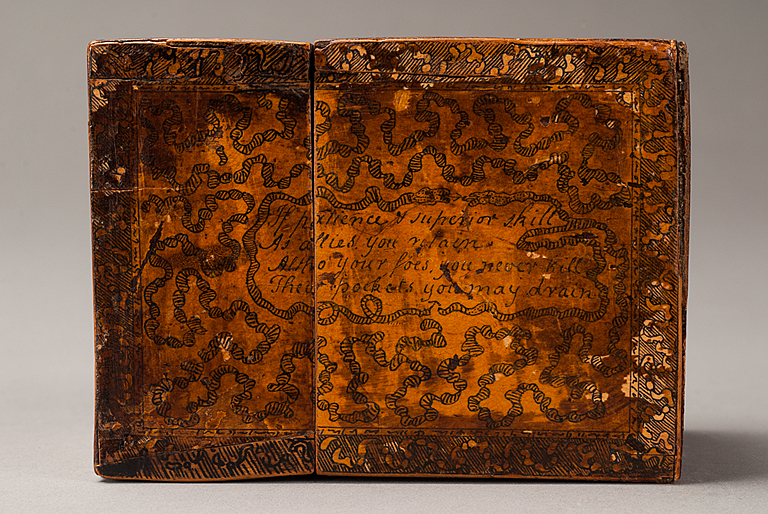 If patience & superior skill
As allies you retain
Altho' your foes, you never kill
Their pockets you may drain